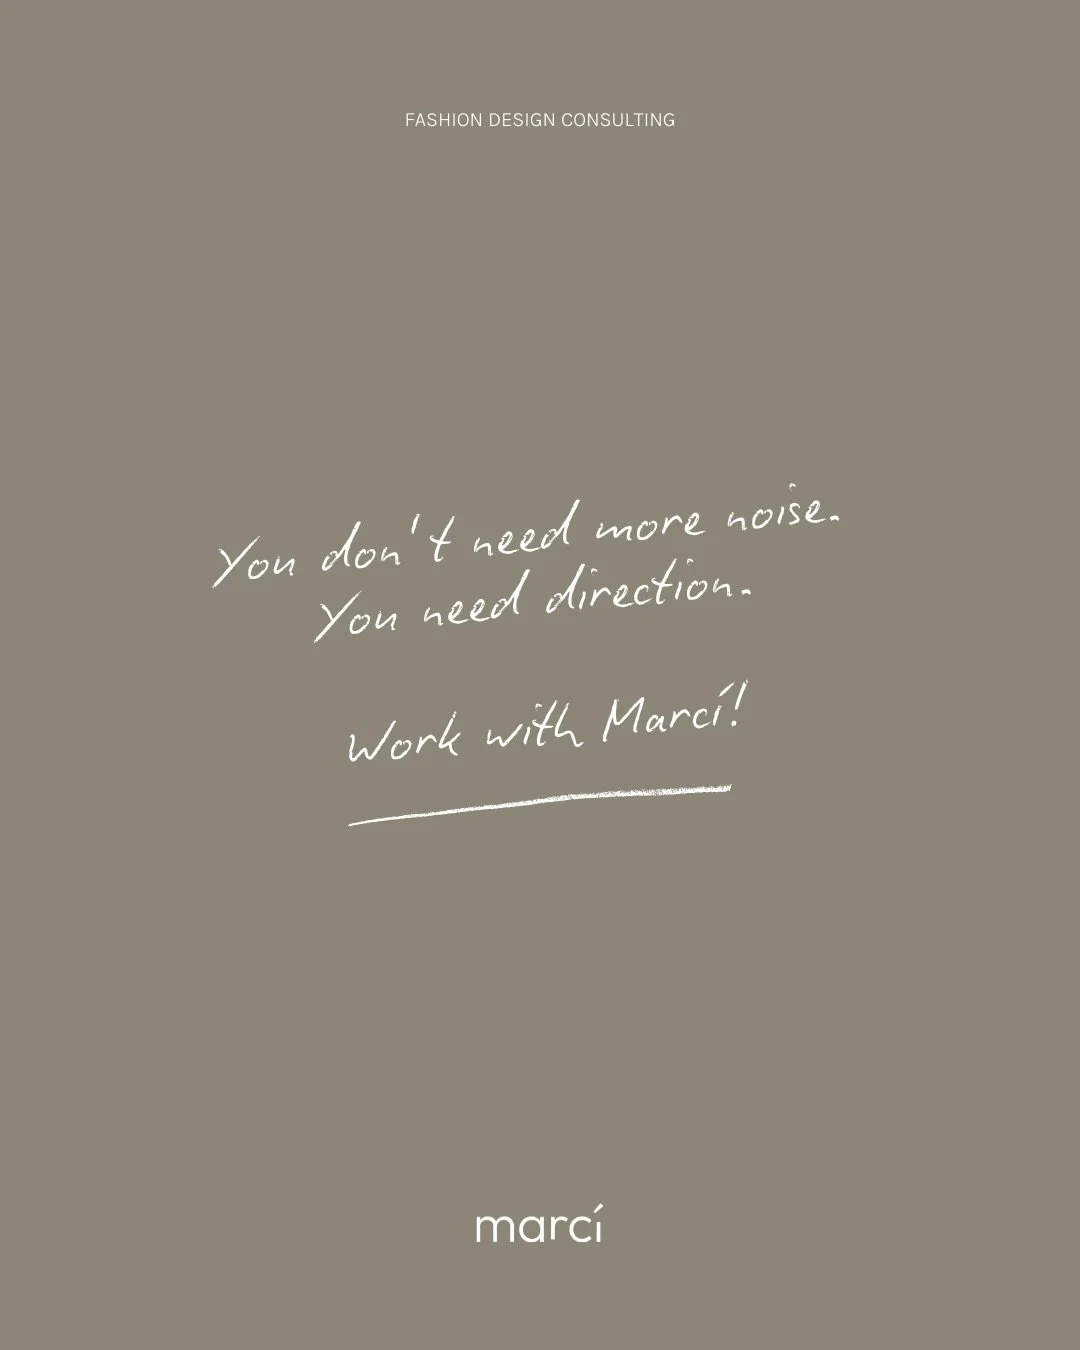 FASHION DESIGN CONSULTING
You don't need more noise.
You need direction.
Work with Marcí!
marcí